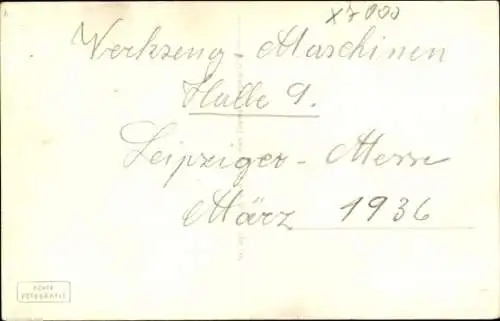 x7000
Werkzeug - Maschinen
Halle 9.
Leipziger - Messe
März 1936
ECHTE
FOTOGRAFIE